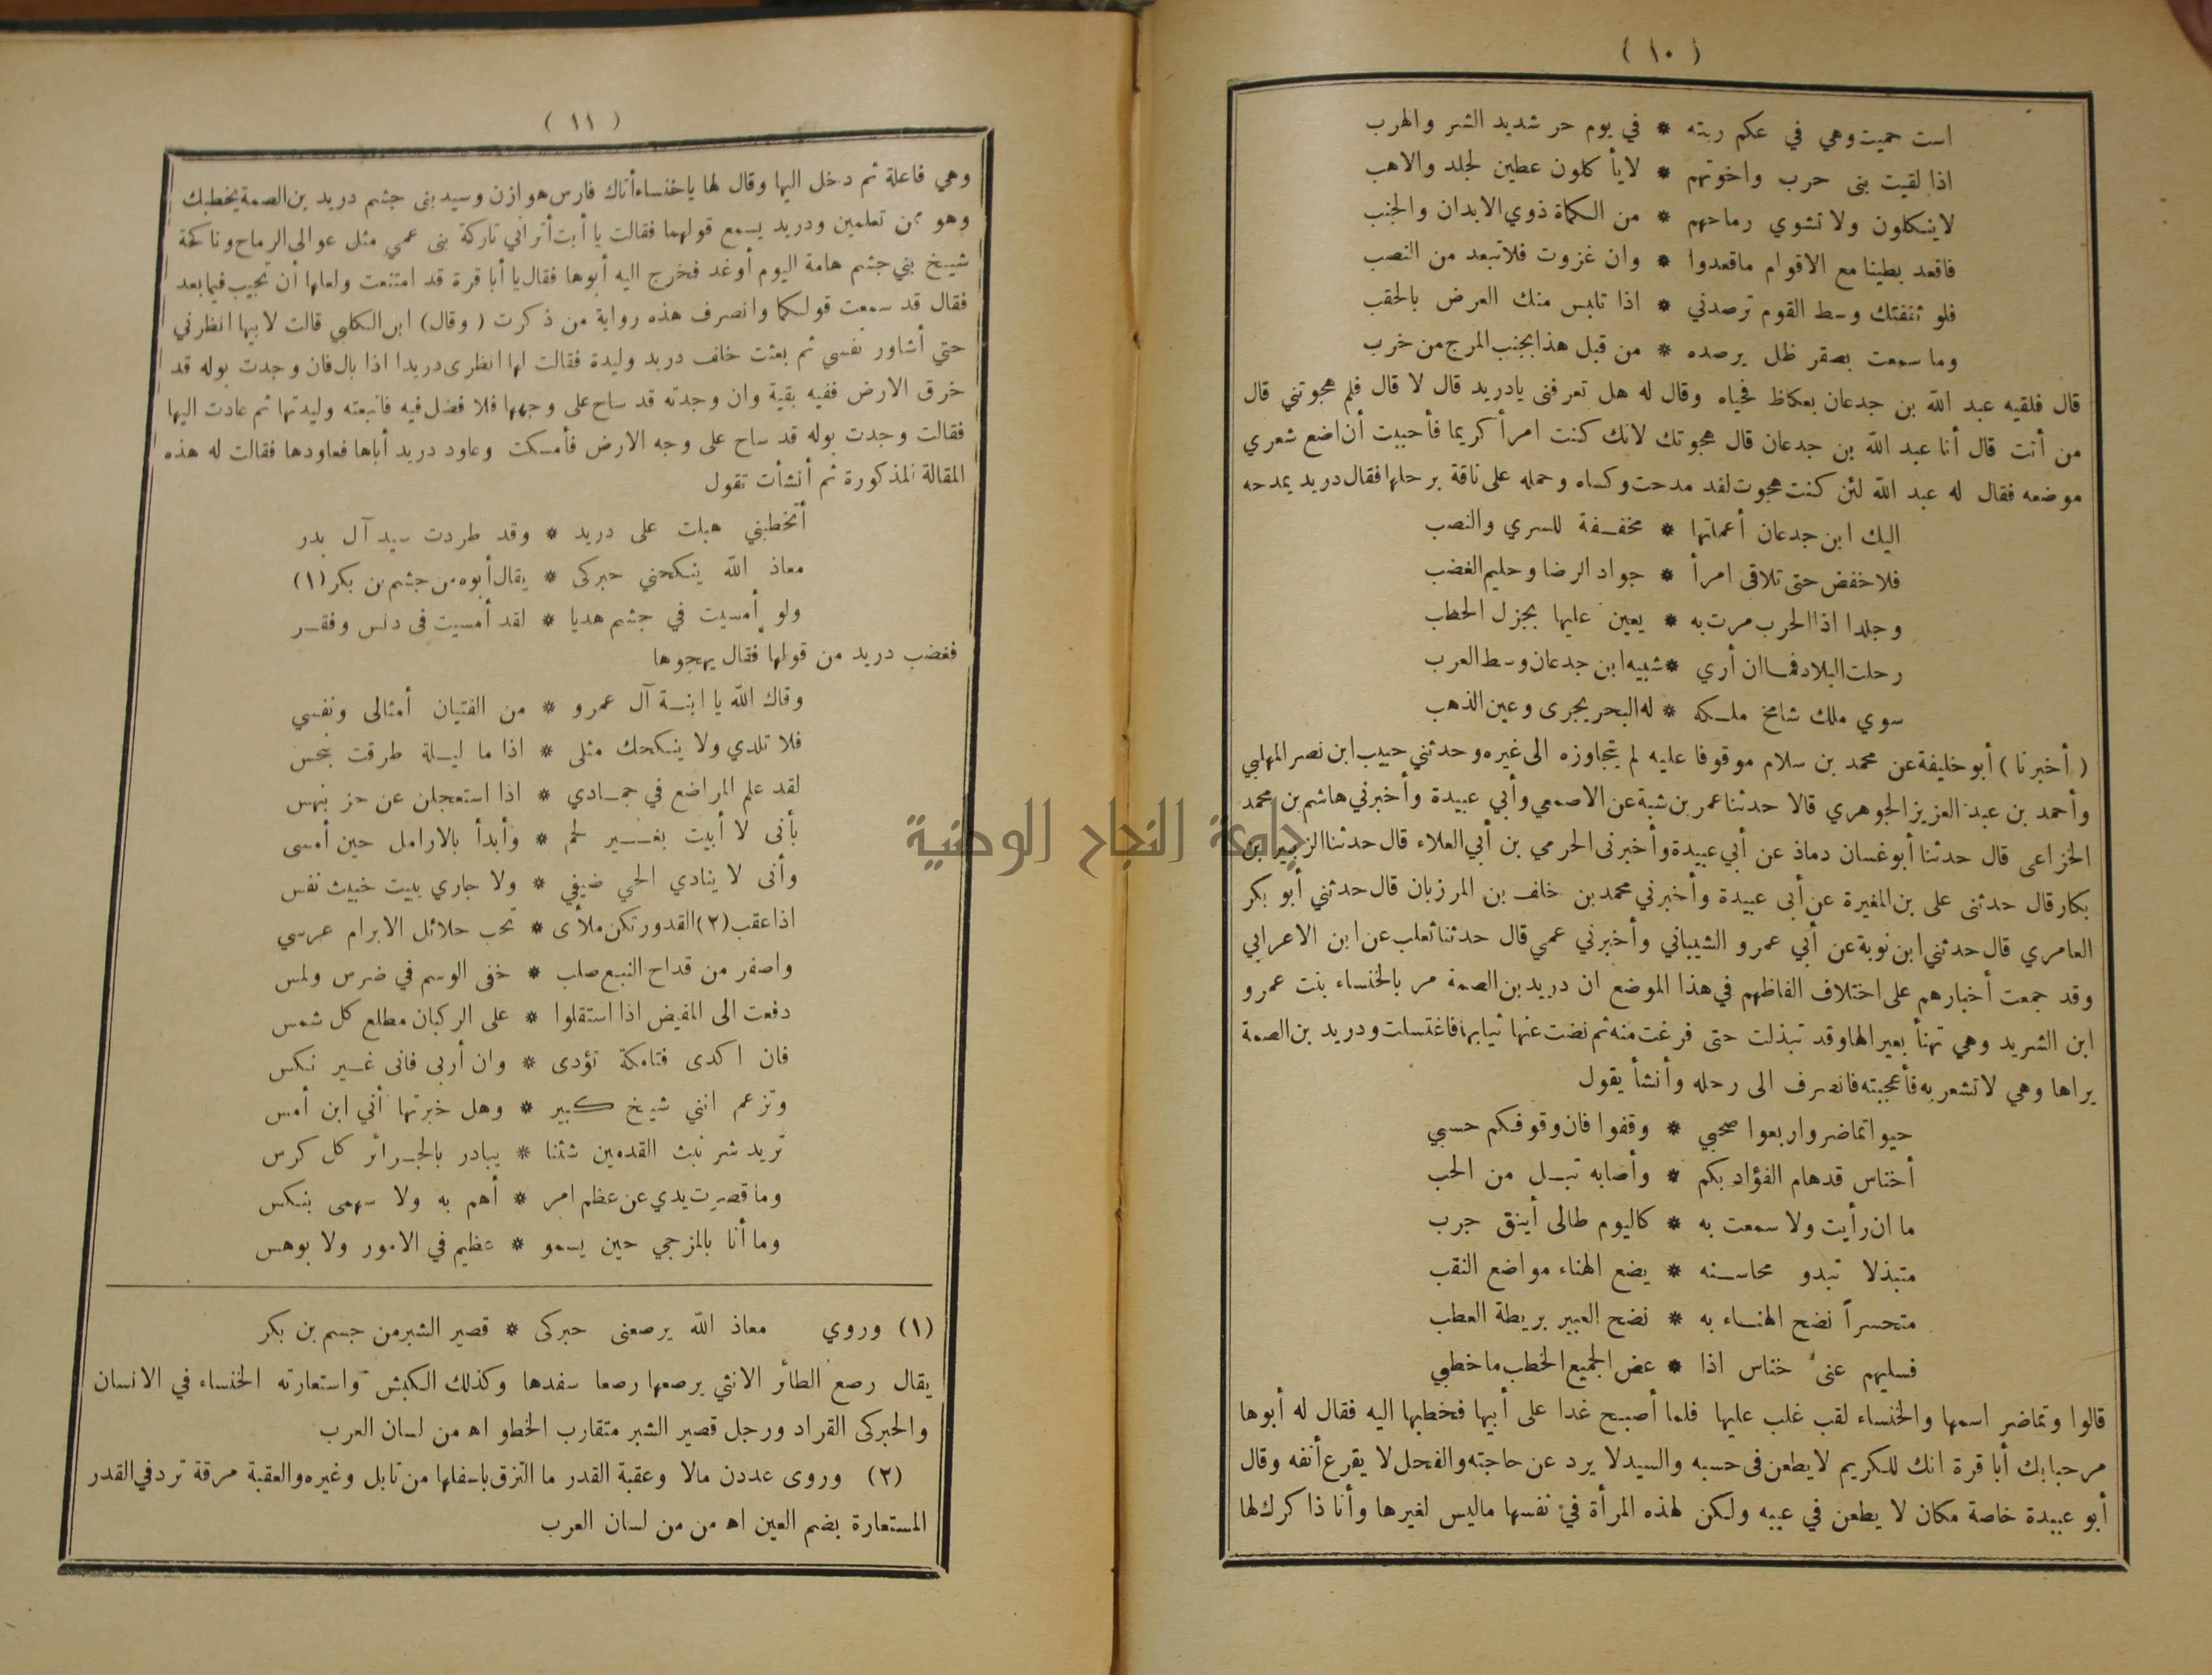 ( ١٠ )
است حميت وهي في عكم ربته * في يوم حر شديد الشر والهرب
اذا لقيت بنى حرب واخوتهم * لا يأكلون عطين الجلد والاهب
لا ينكلون ولا تشوي رماحهم * من الكماة ذوي الابدان والجنب
فاقعد بطينا مع الاقوام ما قعدوا * وان غزوت فلا تبعد من النصب
فلو ثقفتك وسط القوم ترصدني * اذا تلبس منك العرض بالحقب
وما سمعت بصقر ظل يرصده * من قبل هذا بجنب المرج من خرب
قال فلقيه عبد الله بن جدعان بعكاظ فحياه وقال له هل تعرفنى يا دريد قال لا قال فلم هجوتني قال
من أنت قال أنا عبد الله بن جدعان قال هجوتك لانك كنت امرأ كريما فأحببت أن اضع شعري
موضعه فقال له عبد الله لئن كنت هجوت لقد مدحت وكساه وحمله على ناقة برحلها فقال دريد يمدحه
اليك ابن جدعان أعملتها * مخففة للسري والنصب
فلا خفض حتى تلاقى امرأ * جواد الرضا وحليم الغضب
وجلدا اذا الحرب مرت به * يعين عليها بجزل الحطب
رحلت البلاد فما ان أري * شبيه ابن جدعان وسط العرب
سوي ملك شامخ ملكه * له البحر يجرى وعين الذهب
( أخبرنا ) أبو خليفة عن محمد بن سلام موقوفا عليه لم يتجاوزه الى غيره وحدثني حبيب ابن نصر المهلبي
وأحمد بن عبد العزيز الجوهري قالا حدثنا عمر بن شبة عن الاصمعي وأبي عبيدة وأخبرني هاشم بن محمد
الخزاعى قال حدثنا أبو غسان دماذ عن أبي عبيدة وأخبرنى الحرمي بن أبي العلاء قال حدثنا الزبير ابن
بكار قال حدثنى على بن المغيرة عن أبى عبيدة وأخبرني محمد بن خلف بن المرزبان قال حدثني أبو بكر
العامري قال حدثني ابن نوبة عن أبي عمرو الشيباني وأخبرني عمي قال حدثنا ثعلب عن ابن الاعرابي
وقد جمعت أخبارهم على اختلاف الفاظهم في هذا الموضع ان دريد بن الصمة مر بالخنساء بنت عمرو
ابن الشريد وهي تهنأ بعيرا لها وقد تبذلت حتى فرغت منه ثم نضت عنها ثيابها فاغتسلت ودريد بن الصمة
يراها وهي لا تشعر به فأعجبته فانصرف الى رحله وأنشأ يقول
حيوا تماضر واربعوا صحبي * وقفوا فان وقوفكم حسبي
أخناس قد هام الفؤاد بكم * وأصابه تبل من الحب
ما ان رأيت ولا سمعت به * كاليوم طالى أينق جرب
متبذلا تبدو محاسنه * يضع الهناء مواضع النقب
متحسراً نضح الهناء به * نضح العبير بريطة العطب
فسليهم عنى خناس اذا * عض الجميع الخطب ما خطبي
قالوا وتماضر اسمها والخنساء لقب غلب عليها فلما أصبح غدا على أبيها فخطبها اليه فقال له أبوها
مرحبا بك أبا قرة انك للكريم لا يطعن فى حسبه والسيد لا يرد عن حاجته والفحل لا يقرع أنفه وقال
أبو عبيدة خاصة مكان لا يطعن في عيبه ولكن لهذه المرأة في نفسها ما ليس لغيرها وأنا ذاكرك لها
( ١١ )
وهي فاعلة ثم دخل اليها وقال لها يا خنساء أتاك فارس هوازن وسيد بنى جشم دريد بن الصمة يخطبك
وهو من تعلمين ودريد يسمع قولهما فقالت يا أبت أتراني تاركة بنى عمي مثل عوالى الرماح وناكحة
شيخ بني جشم هامة اليوم أو غد فخرج اليه أبوها فقال يا أبا قرة قد امتنعت ولعلها أن تجيب فيما بعد
فقال قد سمعت قولكما وانصرف هذه رواية من ذكرت ( وقال ) ابن الكلبي قالت لابيها انظرني
حتي أشاور نفسي ثم بعثت خلف دريد وليدة فقالت لها انظرى دريدا اذا بال فان وجدت بوله قد
خرق الارض ففيه بقية وان وجدته قد ساح على وجهها فلا فضل فيه فاتبعته وليدتها ثم عادت اليها
فقالت وجدت بوله قد ساح على وجه الارض فأمسكت وعاود دريد أباها فعاودها فقالت له هذه
المقالة المذكورة ثم أنشأت تقول
أتخطبني هبلت على دريد * وقد طردت سيد آل بدر
معاذ الله ينكحني حبركى * يقال أبوه من جشم بن بكر (١)
ولو أمسيت في جشم هديا * لقد أمسيت فى دنس وفقر
فغضب دريد من قولها فقال يهجوها
وقاك الله يا ابنة آل عمرو * من الفتيان أمثالى ونفسي
فلا تلدي ولا ينكحك مثلى * اذا ما ليلة طرقت بنحس
لقد علم المراضع في جمادي * اذا استعجلن عن حز بنهس
بأنى لا أبيت بغير لحم * وأبدأ بالارامل حين أمسى
وأنى لا ينادي الحي ضيفي * ولا جاري يبيت خبيث نفس
اذا عقب (٢) القدور تكن ملأى * تحب حلائل الابرام عرسي
واصفر من قداح النبع صلب * خفى الوسم في ضرس ولمس
دفعت الى المفيض اذا استقلوا * على الركبان مطلع كل شمس
فان اكدى فتامكة تؤدى * وان أربى فانى غير نكس
وتزعم انني شيخ كبير * وهل خبرتها أني ابن أمس
تريد شرنبث القدمين شثنا * يبادر بالجرائر كل كرس
وما قصرت يدي عن عظم امر * أهم به ولا سهمى بنكس
وما أنا بالمزجي حين يسمو * عظيم في الامور ولا بوهس
(١) وروي معاذ الله يرصعنى حبركى * قصير الشبر من جسم بن بكر
يقال رصع الطائر الانثي يرصعها رصعا سفدها وكذلك الكبش واستعارته الخنساء في الانسان
والحبركى القراد ورجل قصير الشبر متقارب الخطو اه من لسان العرب
(٢) وروى عددن مالا وعقبة القدر ما التزق باسفلها من تابل وغيره والعقبة مرقة ترد في القدر
المستعارة بضم العين اه من من لسان العرب
جامعة النجاح الوطنية